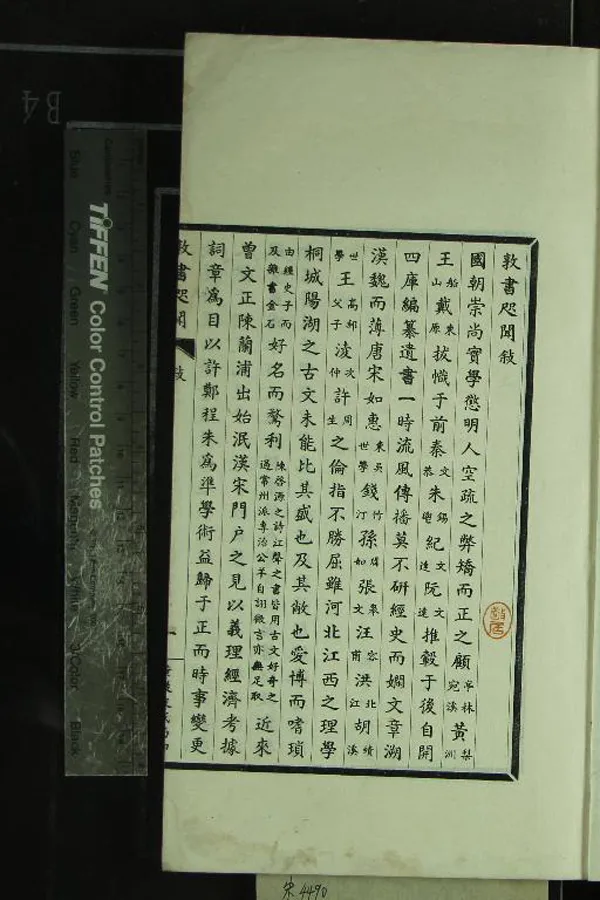 敦書咫聞敍
國朝崇尚實學懲明人空疏之弊矯而正之顧亭林宛溪黃梨洲
王船山戴東原拔幟于前秦文恭朱錫鬯紀文達阮文達推轂于後自開
四庫編纂遺書一時流風傳播莫不研經史而嫻文章溯
漢魏而薄唐宋如惠東吳世學錢竹汀孫淵如張皋文汪容甫洪北江胡績溪
世學王高郵父子淩次仲許周生之倫指不勝屈雖河北江西之理學
桐城陽湖之古文未能比其盛也及其敝也愛博而嗜瑣
由經史子而及雜書金石好名而騖利陳啓源之詩江聲之書皆用古文好奇之過常州派專治公羊自詡微言亦無足取近來
曾文正陳蘭浦出始泯漢宋門户之見以義理經濟考據
詞章爲目以許鄭程朱爲準學術益歸于正而時事變更
敦書咫聞 敍
一
B4
TIFFEN Color Control Patches
Blue Cyan Green Yellow Red Magenta White 3/Color Black
宋4490